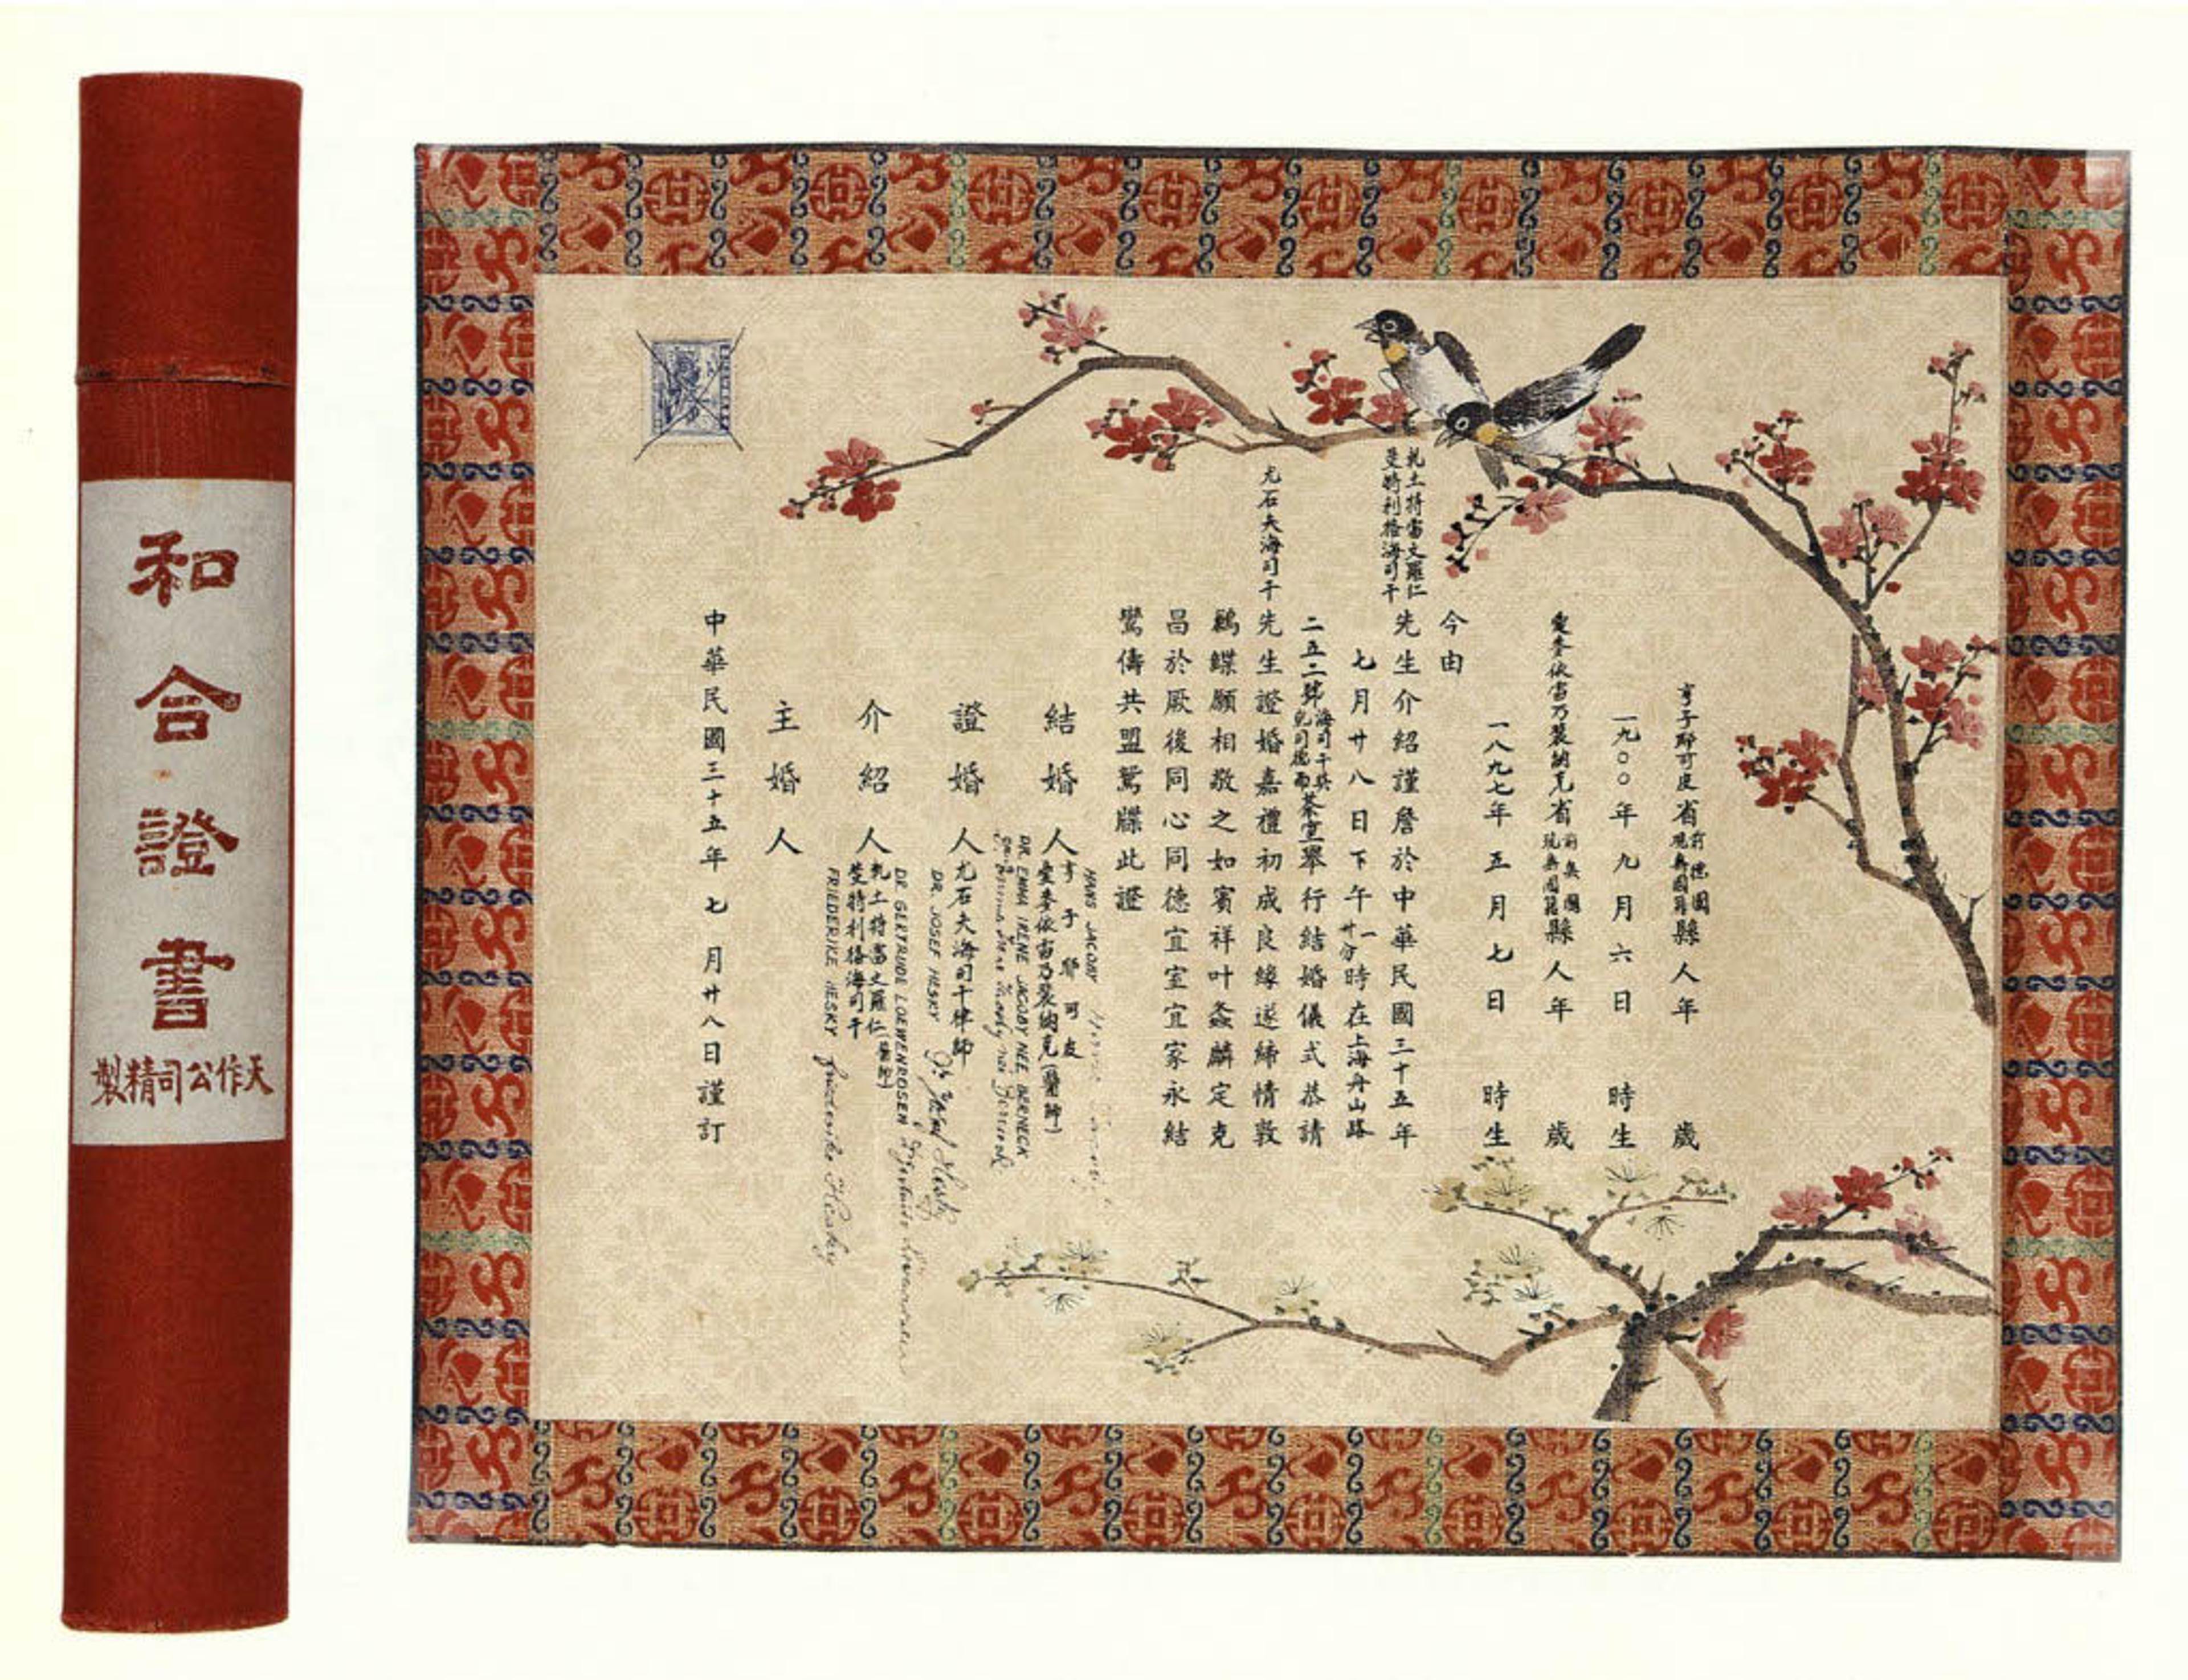 和合證書
天作公司精製
亨子耶可皮省前德國現無國籍縣人年 歲
一九〇〇年九月六日 時生
愛麥依雷乃裴納克省前奥國現無國籍縣人年 歲
一八九七年五月七日 時生
今由
札土特雷文羅仁
斐特利格海司干
先生介紹謹詹於中華民國三十五年
七月廿八日下午一時廿分在上海舟山路
二五二號海司干茶室舉行結婚儀式恭請
尤石夫海司干先生證婚嘉禮初成良緣遂締情敦
鶼鰈願相敬之如賓祥叶螽麟定克
昌於厥後同心同德宜室宜家永結
鸞儔共盟鴛牒此證
結婚人
HANS JACOBY
亨子耶可皮
愛麥依雷乃裴納克(醫師)
DR. EMMA IRENE JACOBY NEE BERNECK
證婚人 尤石夫海司干律師
DR. JOSEF HESKY Dr Josef Hesky
介紹人
DR GERTRUDE LOEWENROSEN
札土特雷文羅仁(醫師)
斐特利格海司干
FRIEDERIKE HESKY Friederike Hesky
主婚人
中華民國三十五年七月廿八日謹訂